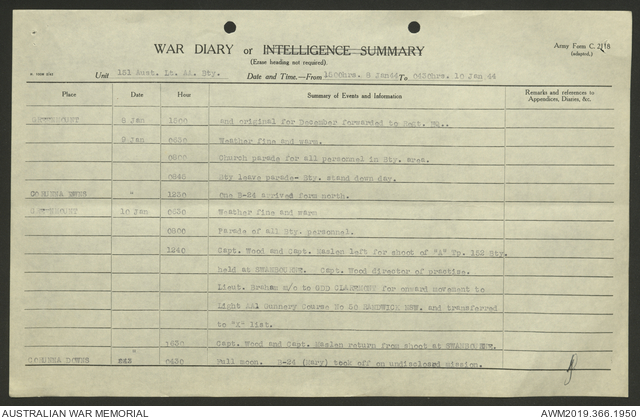 WAR DIARY or INTELLIGENCE SUMMARY
(Erase heading not required).
Army Form C. 2118
(adapted.)
Unit 151 Aust. Lt. AA. Bty. Date and Time.—From 1500hrs. 8 Jan44 To 0430hrs. 10 Jan 44
Place Date Hour Summary of Events and Information Remarks and references to Appendices, Diaries, &c.
8 Jan 1500 and original for December forwarded to
9 Jan 0630 Weather fine and warm.
0800 Church parade for all personnel in Bty. area.
0845 Bty leave parade- Bty. stand down day.
CORUNNA DOWNS " 1230 One B-24 arrived form north.
10 Jan 0630 Weather fine and warm
0800 Parade of all Bty. personnel.
1240 Capt. Wood and Capt. Maslen left for shoot of "A" Tp. 152 Bty.
held at SWANBOURNE. Capt. Wood director of practise.
Lieut. Braham m/o to GDD CLAREMONT for onward movement to
Light AA1 Gunnery Course No 50 RANDWICK NSW. and transferred
to "X" list.
1630 Capt. Wood and Capt. Maslen return from shoot at SWANBOURNE.
CORUNNA DOWNS 0430 Full moon. B-24 (Mary) took off on undisclosed mission.
AUSTRALIAN WAR MEMORIAL AWM2019.366.1950